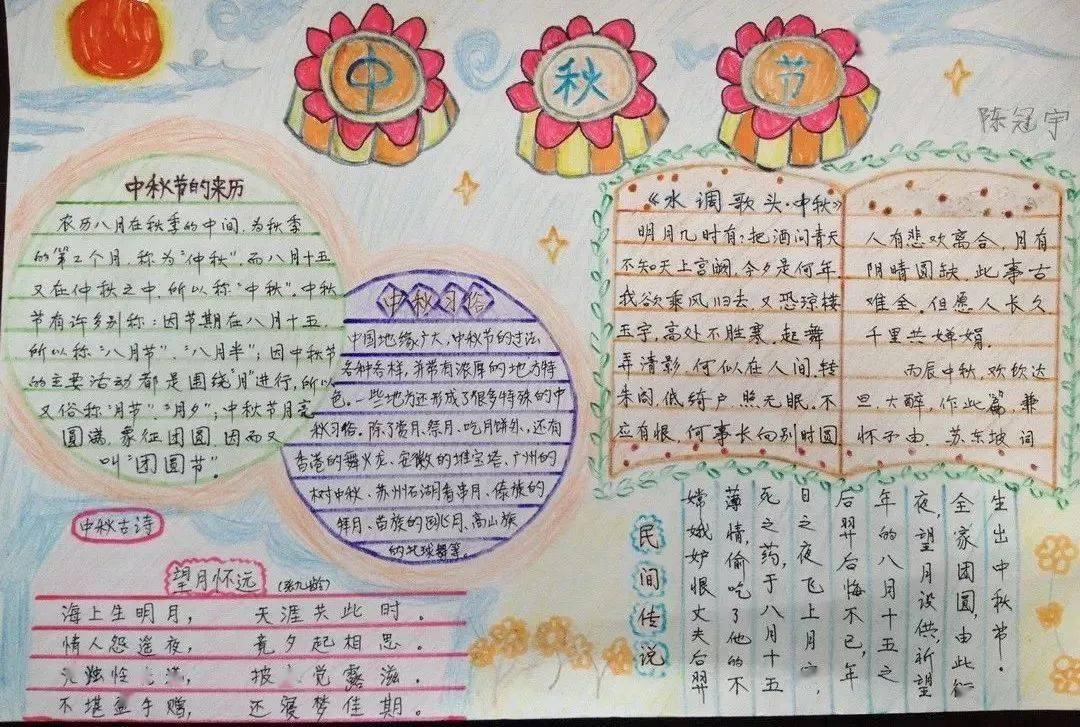 中秋节
陈冠宇
中秋节的来历
农历八月在秋季的中间,为秋季
的第2个月,称为“仲秋”,而八月十五
又在仲秋之中,所以称“中秋”。中秋
节有许多别称:因节期在八月十五,
所以称“八月节”、“八月半”;因中秋节
的主要活动都是围绕“月”进行,所以
又俗称“月节”、“月夕”;中秋节月亮
圆满,象征团圆,因而又
叫“团圆节”。
中秋习俗
中国地缘广大,中秋节的过法
各种各样,并带有浓厚的地方特
色。一些地方还形成了很多特殊的中
秋习俗。除了赏月、祭月、吃月饼外,还有
香港的舞火龙、安徽的堆宝塔、广州的
树中秋、苏州石湖看串月、傣族的
拜月、苗族的跳月、高山族
的托球舞等。
《水调歌头·中秋》
明月几时有?把酒问青天
不知天上宫阙,今夕是何年
我欲乘风归去,又恐琼楼
玉宇,高处不胜寒,起舞
弄清影,何似在人间,转
朱阁,低绮户,照无眠。不
应有恨,何事长向别时圆
人有悲欢离合,月有
阴晴圆缺,此事古
难全。但愿人长久
千里共婵娟。
丙辰中秋,欢饮达
旦,大醉,作此篇,兼
怀子由. 苏东坡 词
中秋古诗
望月怀远(张九龄)
海上生明月, 天涯共此时。
情人怨遥夜, 竟夕起相思。
烛 披 觉露滋。
不堪盈手赠, 还寝梦佳期。
民间传说
嫦娥妒恨丈夫后羿
薄情,偷吃了他的不
死之药,于八月十五
日之夜飞上月
后羿后悔不已,年
年的八月十五之
夜,望月设供,祈望
全家团圆,由此
生出中秋节。